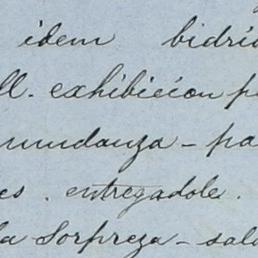 idem bidri
ll. exhibicion p
mundanza - pa
es. entregadole.
la Sorpreza - sal